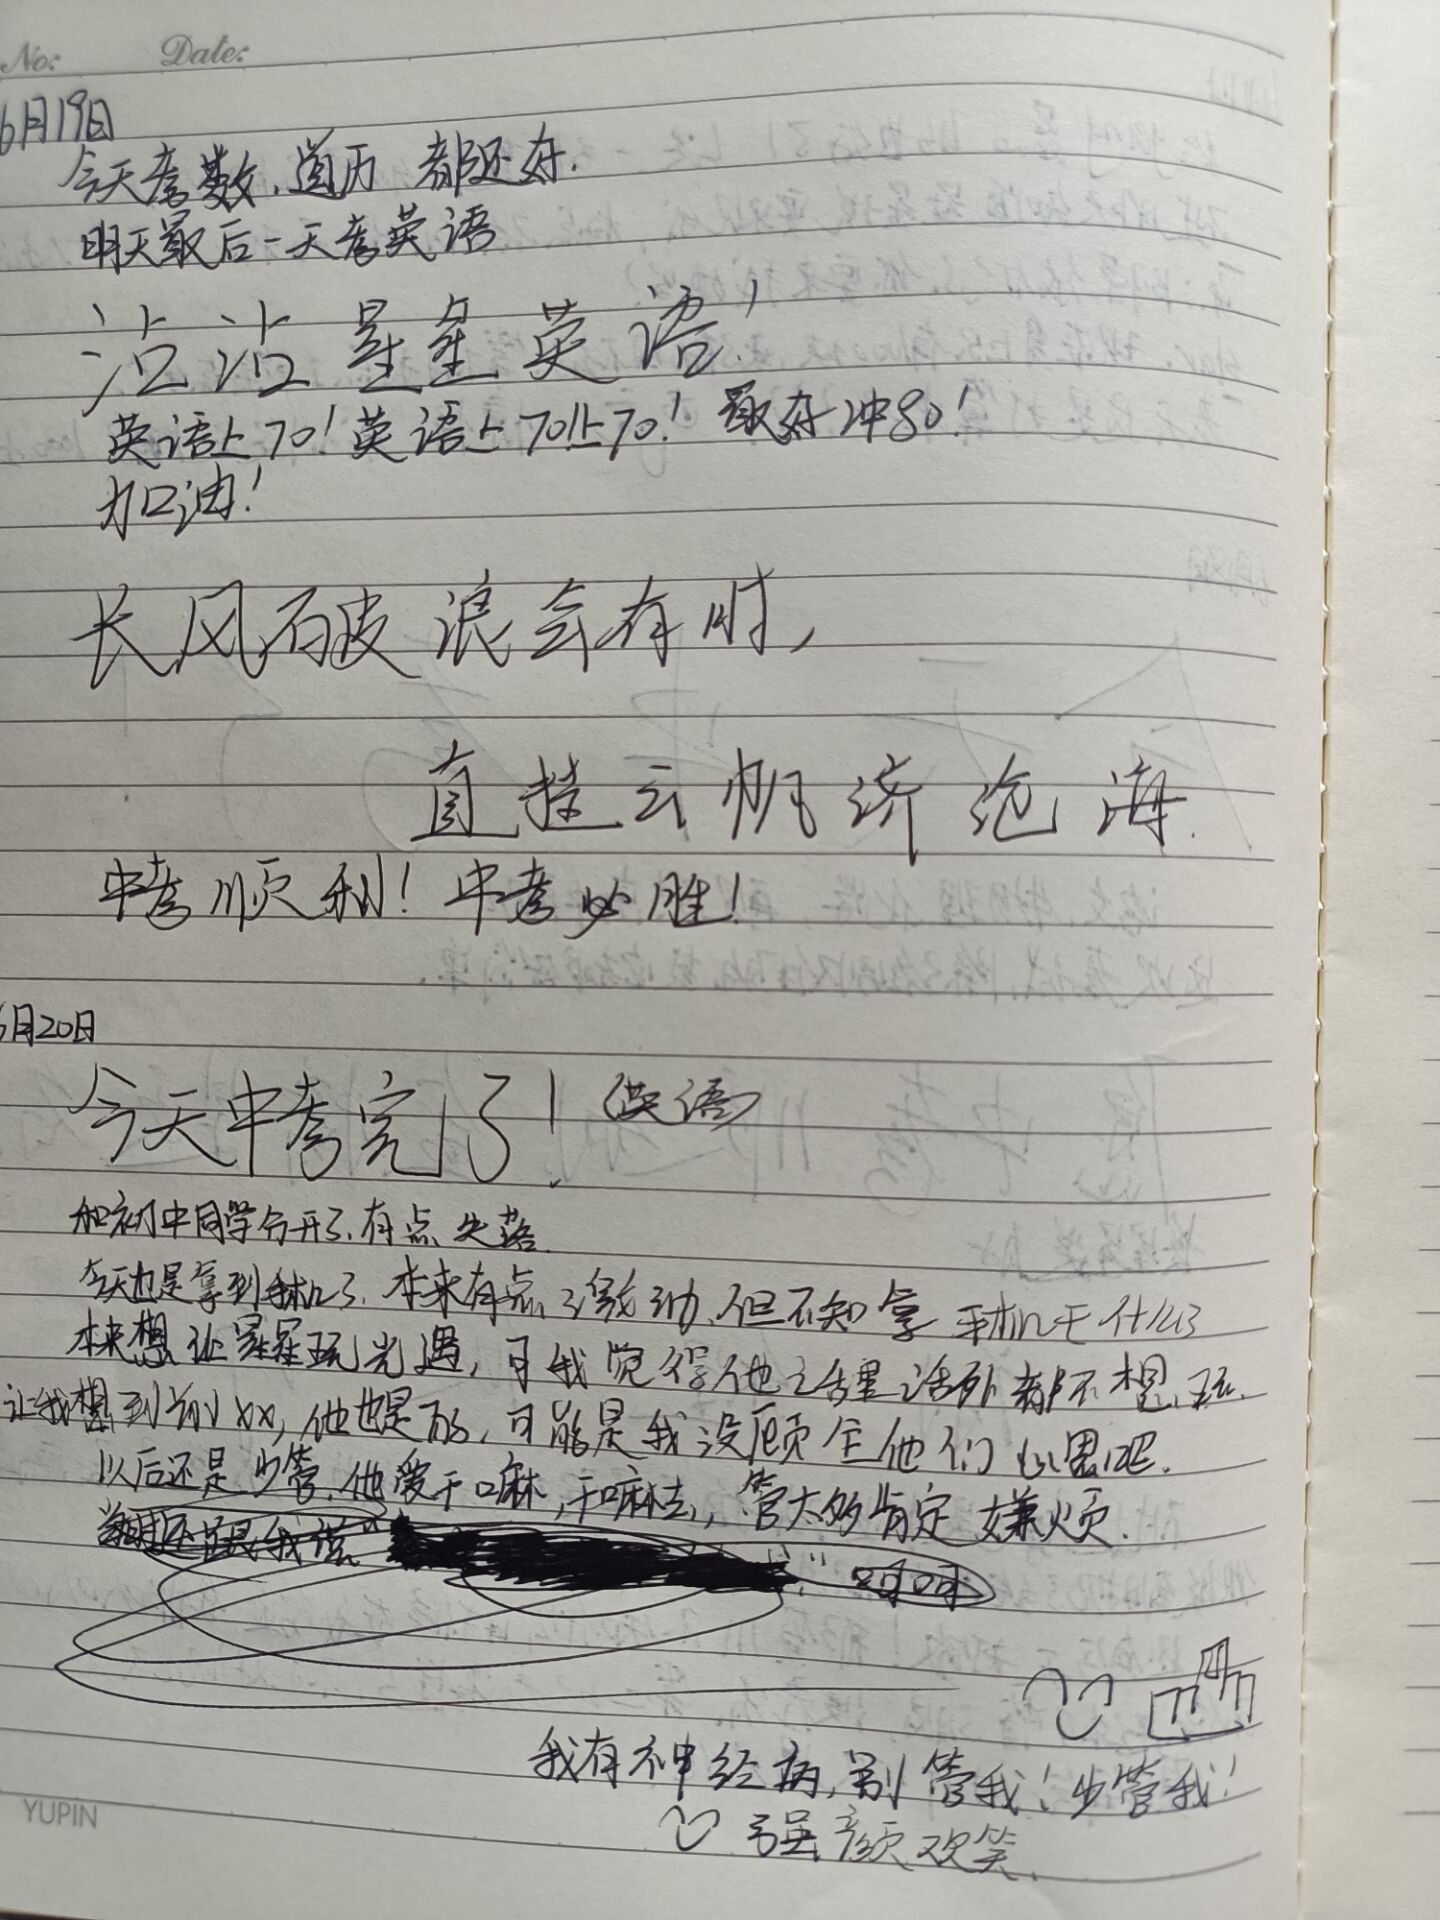 No: Date:
6月19日
今天考数、道历 都还好.
明天最后一天考英语
沾沾星星英语!
英语上70!英语上70!上70!最好冲80!
加油!
长风破浪会有时,
直挂云帆济沧海.
中考顺利!中考必胜!
6月20日
今天中考完了!(英语)
和初中同学分开了.有点失落.
今天也是拿到手机了.本来有点激动.但不知拿手机干什么了
本来想让星星玩光遇,可我觉得他话里话外都不想玩.
让我想到前xx,他也是的,可能是我没顾全他们心思吧.
以后还是少管.他爱干嘛,干嘛去,管太多肯定嫌烦.
还跟我说"
我有神经病,别管我!少管我!
强颜欢笑.
YUPIN